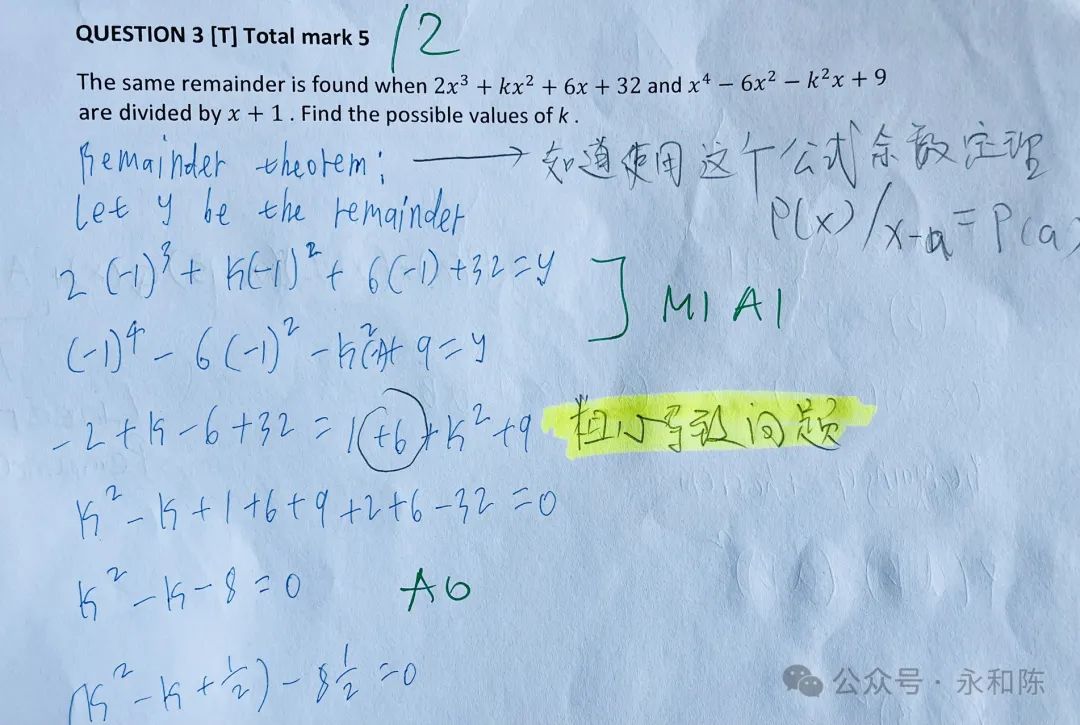 QUESTION 3 [T] Total mark 5 /2
The same remainder is found when 2x³ + kx² + 6x + 32 and x⁴ − 6x² − k²x + 9
are divided by x + 1 . Find the possible values of k .
Remainder theorem: → 知道使用这个公式余数定理
Let y be the remainder
P(x)/x-a = P(a)
2(-1)³ + k(-1)² + 6(-1) + 32 = y
M1 A1
(-1)⁴ - 6(-1)² - k²(-1) + 9 = y
-2 + k - 6 + 32 = 1 + 6 + k² + 9 粗心导致问题
k² - k + 1 + 6 + 9 + 2 + 6 - 32 = 0
k² - k - 8 = 0 A0
(k² - k + 1/2) - 8 1/2 = 0
公众号 · 永和陈